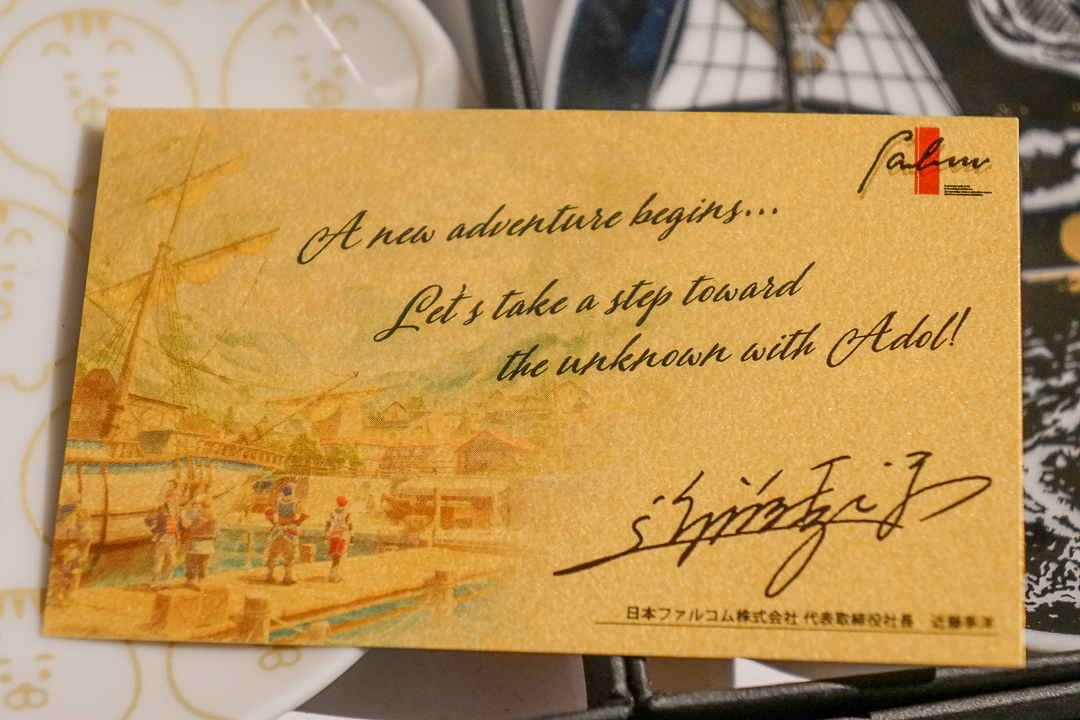 Falcom
A new adventure begins...
Let's take a step toward
the unknown with Adol!
日本ファルコム株式会社 代表取締役社長 近藤季洋